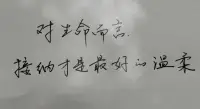 对生命而言.
接纳才是最好的温柔